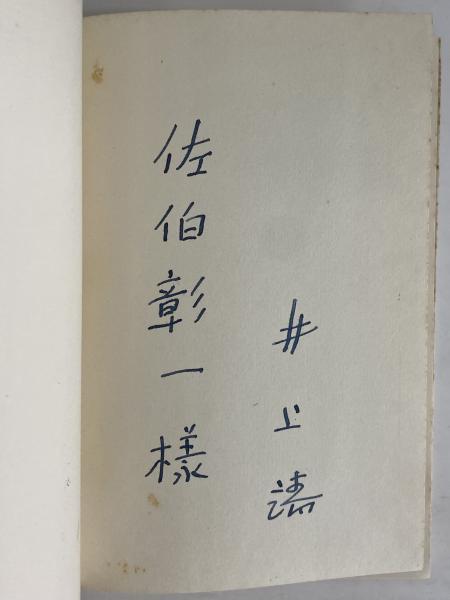 井上靖
佐伯彰一様